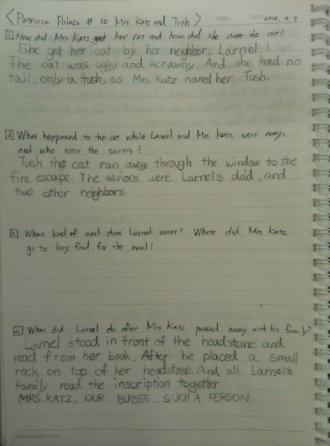 < Patricia Polacco # 10 Mrs. Katz and Tush >
1 How did Mrs. Katz get her cat and how did she name the cat?
She got her cat by her neighbor, Larnel.
The cat was ugly and scrawny. And she had no
tail, only a tush, so Mrs. Katz named her Tush.
2 What happened to the cat while Larnel and Mrs. Katz were away,
and who were the saviors?
Tush the cat ran away through the window to the
fire escape. The saviors were Larnel's dad, and
two other neighbors.
3 What kind of meal does Larnel want? Where did Mrs. Katz
go to buy find for the meal?
4 What did Larnel do after Mrs. Katz passed away with his family?
Larnel stood in front of the headstone and
read from her book. After he placed a small
rock on top of her headstone. And all Larnel's
family read the inscription together
MRS. KATZ, OUR BUBEE.. SUCH A PERSON.